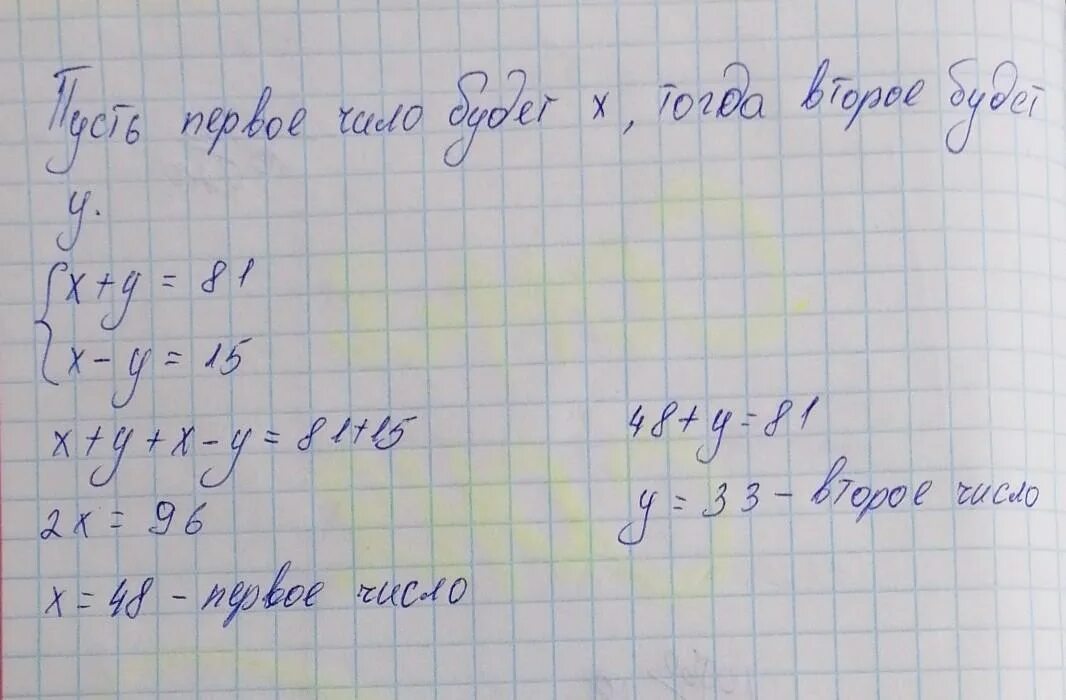 Пусть первое чило будет x, тогда второе будет
y.
x+y = 81
x-y = 15
x+y+x-y = 81+15
2x = 96
x = 48 - первое число
48+y=81
y = 33 - второе число